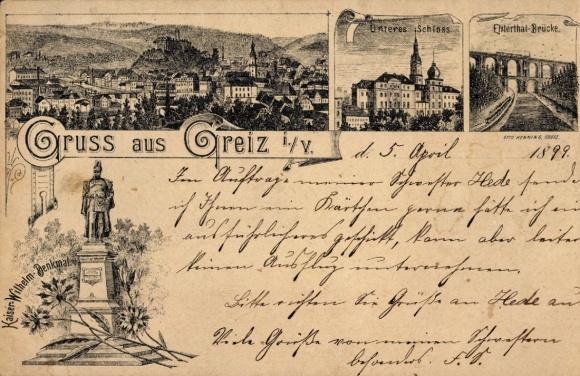 Unteres Schloss.
Elsterthal-Brücke.
OTTO HENNING, GREIZ.
Gruss aus Greiz i/V.
d. 5. April 1899.
Im Auftrage meiner Schwester Hede sende
ich Ihnen ein Kärtchen gerne hätte ich ein
ausführlicheres geschickt, kann aber leider
keinen Ausflug unternehmen.
Bitte richten Sie Grüße an Hede aus
Viele Grüße von meinen Schwestern
besonders. F. S.
Kaiser-Wilhelm-Denkmal